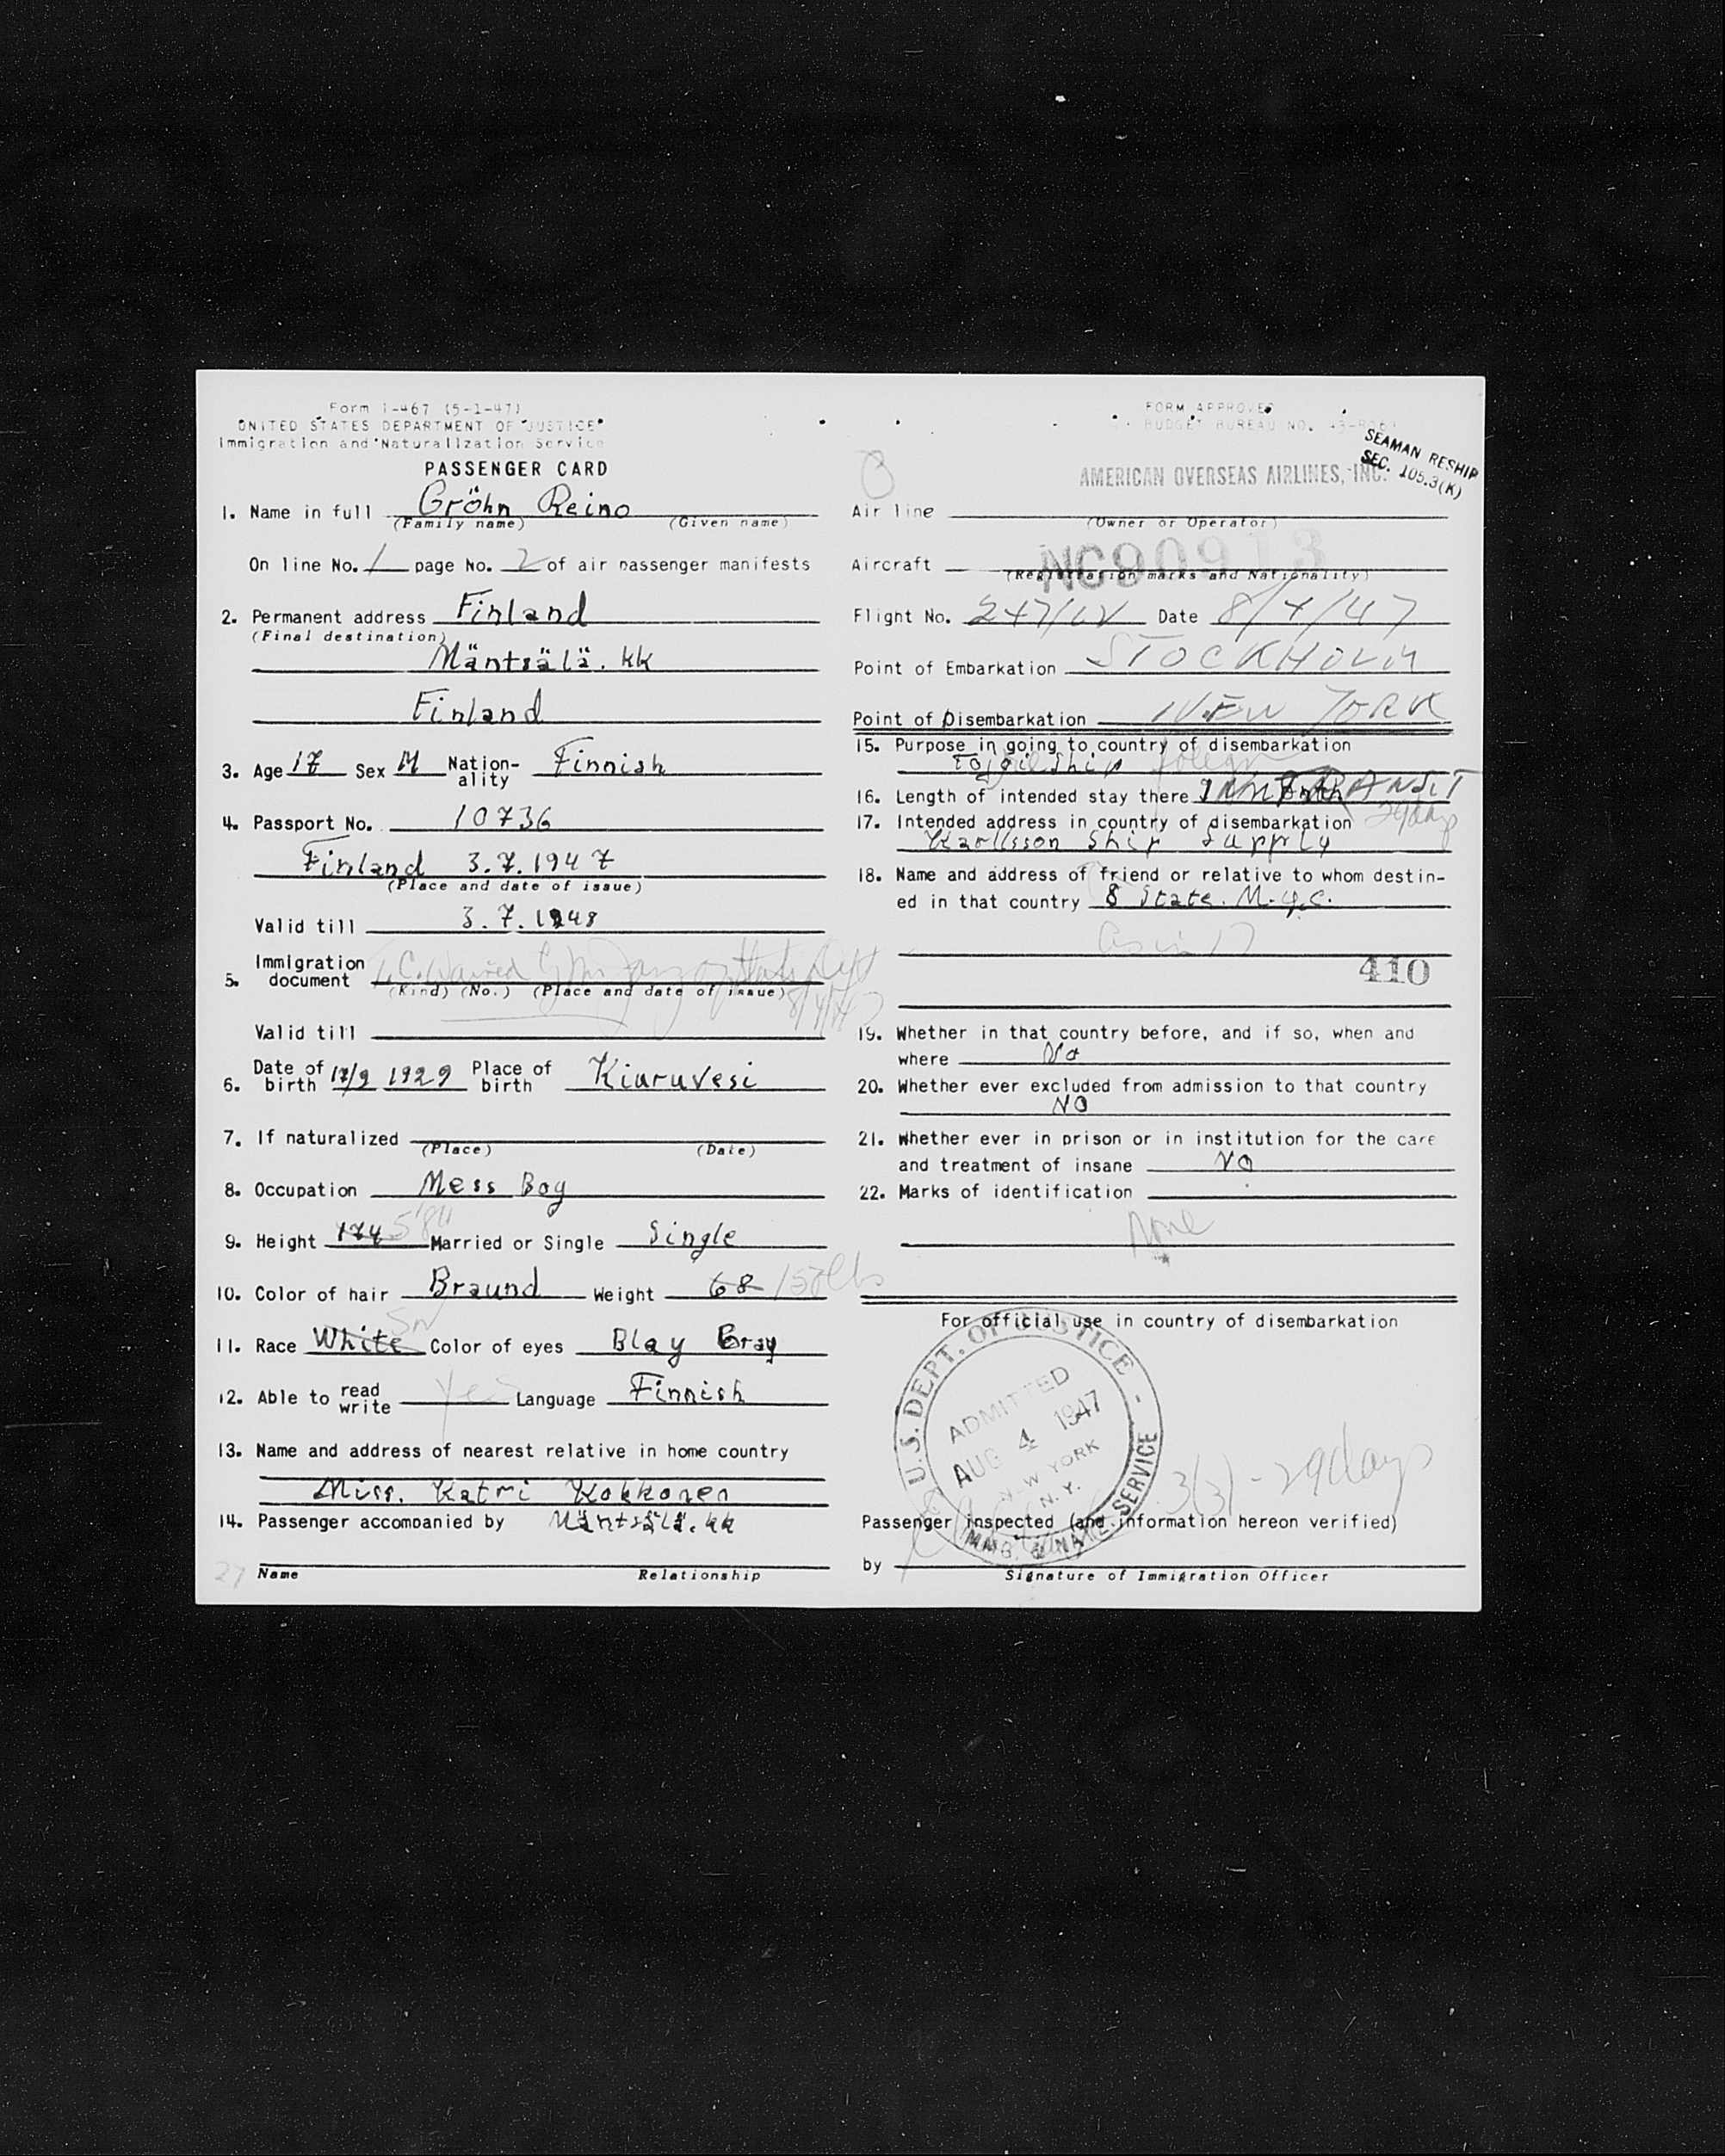 Form I-467 (5-1-47)
UNITED STATES DEPARTMENT OF JUSTICE
Immigration and Naturalization Service
PASSENGER CARD
1. Name in full Gröhn Reino
(Family name) (Given name)
On line No. 1 page No. 2 of air passenger manifests
2. Permanent address Finland
(Final destination)
Mäntsälä. kk
Finland
3. Age 17 Sex M Nation-ality Finnish
4. Passport No. 10736
Finland 3.7.1947
(Place and date of issue)
Valid till 3.7.1948
5. Immigration document
(Kind) (No.) (Place and date of issue)
8/4/47
Valid till
6. Date of birth 17/9 1929 Place of birth Kiuruvesi
7. If naturalized
(Place) (Date)
8. Occupation Mess Boy
9. Height 174 5'8" Married or Single Single
10. Color of hair Braund Weight 68 150 lbs
11. Race White Color of eyes Blay Gray
12. Able to read write Yes Language Finnish
13. Name and address of nearest relative in home country
Miss. Katri Kokkonen
14. Passenger accompanied by Mäntsälä. kk
27 Name Relationship
FORM APPROVED
BUDGET BUREAU NO.
SEAMAN RESHIP
SEC. 105.3(K)
AMERICAN OVERSEAS AIRLINES, INC.
Air line
(Owner or Operator)
Aircraft NC90913
(Registration marks and Nationality)
Flight No. Date 8/4/47
Point of Embarkation STOCKHOLM
Point of Disembarkation NEW YORK
15. Purpose in going to country of disembarkation
16. Length of intended stay there TRANSIT
29 days
17. Intended address in country of disembarkation
Karllsson Ship Supply
18. Name and address of friend or relative to whom destin-
ed in that country 8 State. M.y.c.
as in 17
410
19. Whether in that country before, and if so, when and
where No
20. Whether ever excluded from admission to that country
NO
21. Whether ever in prison or in institution for the care
and treatment of insane NO
22. Marks of identification
None
For official use in country of disembarkation
U.S. DEPT. OF JUSTICE - IMMIG. & NATZ. SERVICE
ADMITTED
AUG 4 1947
NEW YORK
N.Y.
3(3) - 29 days
Passenger inspected (and information hereon verified)
by
Signature of Immigration Officer